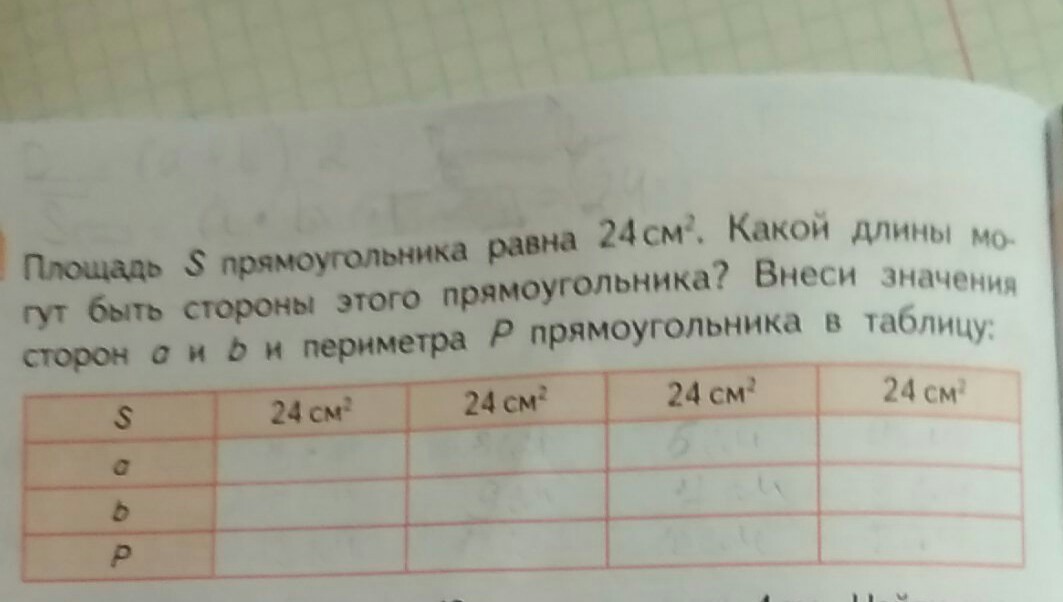 Площадь S прямоугольника равна 24 см². Какой длины мо-
гут быть стороны этого прямоугольника? Внеси значения
сторон a и b и периметра P прямоугольника в таблицу:
S 24 см² 24 см² 24 см² 24 см²
a
b
P